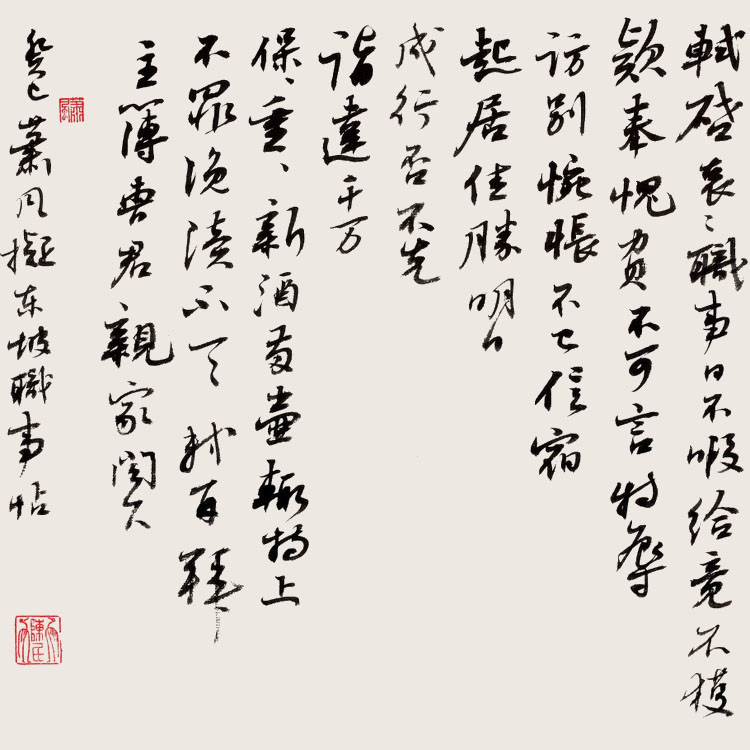 軾啓衰職事日不暇給竟不獲
款奉愧負不可言特辱
訪别惋悵不已信宿
起居佳勝明日
成行否不克
詣違千万
保、重、新酒兩壺輒持上
不罪浼瀆不一一軾再拜
主簿曹君親家閣下
癸巳蕭月擬东坡職事帖